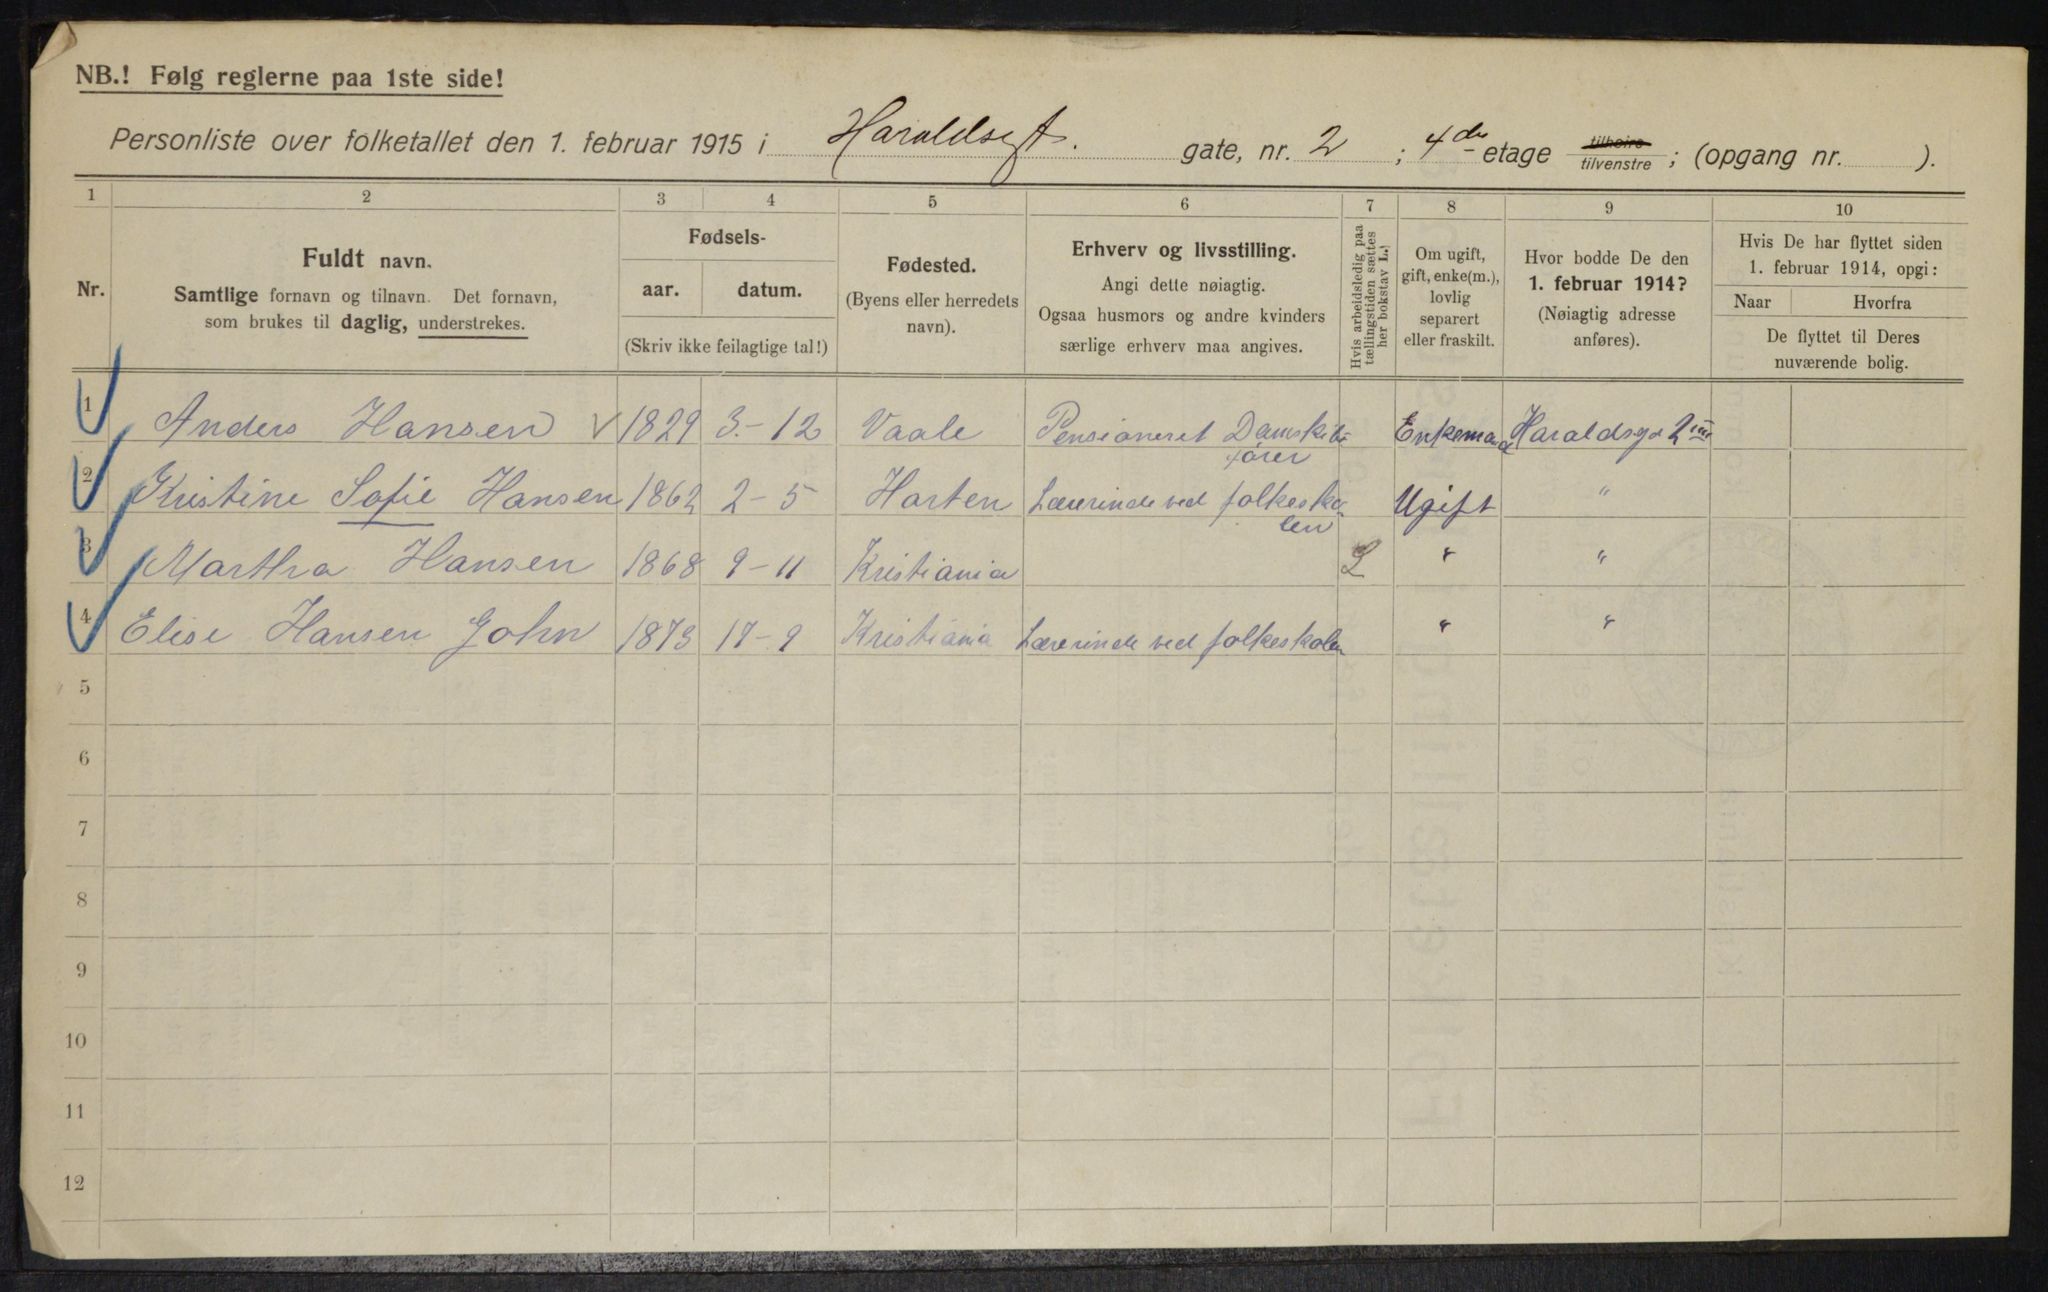 NB.! Følg reglerne paa 1ste side!
Personliste over folketallet den 1. februar 1915 i Haraldsgt. gate, nr. 2 ; 4de etage tilhøire tilvenstre ; (opgang nr. ).
1 2 3 4 5 6 7 8 9 10
Nr.
Fuldt navn.
Samtlige fornavn og tilnavn. Det fornavn,
som brukes til daglig, understrekes.
Fødsels-
aar. datum.
(Skriv ikke feilagtige tal!)
Fødested.
(Byens eller herredets
navn).
Erhverv og livsstilling.
Angi dette nøiagtig.
Ogsaa husmors og andre kvinders
særlige erhverv maa angives.
Hvis arbeidsledig paa
tællingstiden sættes
her bokstav L.
Om ugift,
gift, enke(m.),
lovlig
separert
eller fraskilt.
Hvor bodde De den
1. februar 1914?
(Nøiagtig adresse
anføres).
Hvis De har flyttet siden
1. februar 1914, opgi:
Naar Hvorfra
De flyttet til Deres
nuværende bolig.
1 Anders Hansen 1829 3.-12 Vaale Pensioneret Damskibs
fører Enkemand Haraldsgt 2 III
2 Kristine Sofie Hansen 1862 2-5 Horten Lærerinde ved folkesko
len Ugift "
3 Martha Hansen 1868 9-11 Kristiania L " "
4 Elise Hansen John 1873 17-9 Kristiania Lærerinde ved folkeskolen " "
5
6
7
8
9
10
11
12